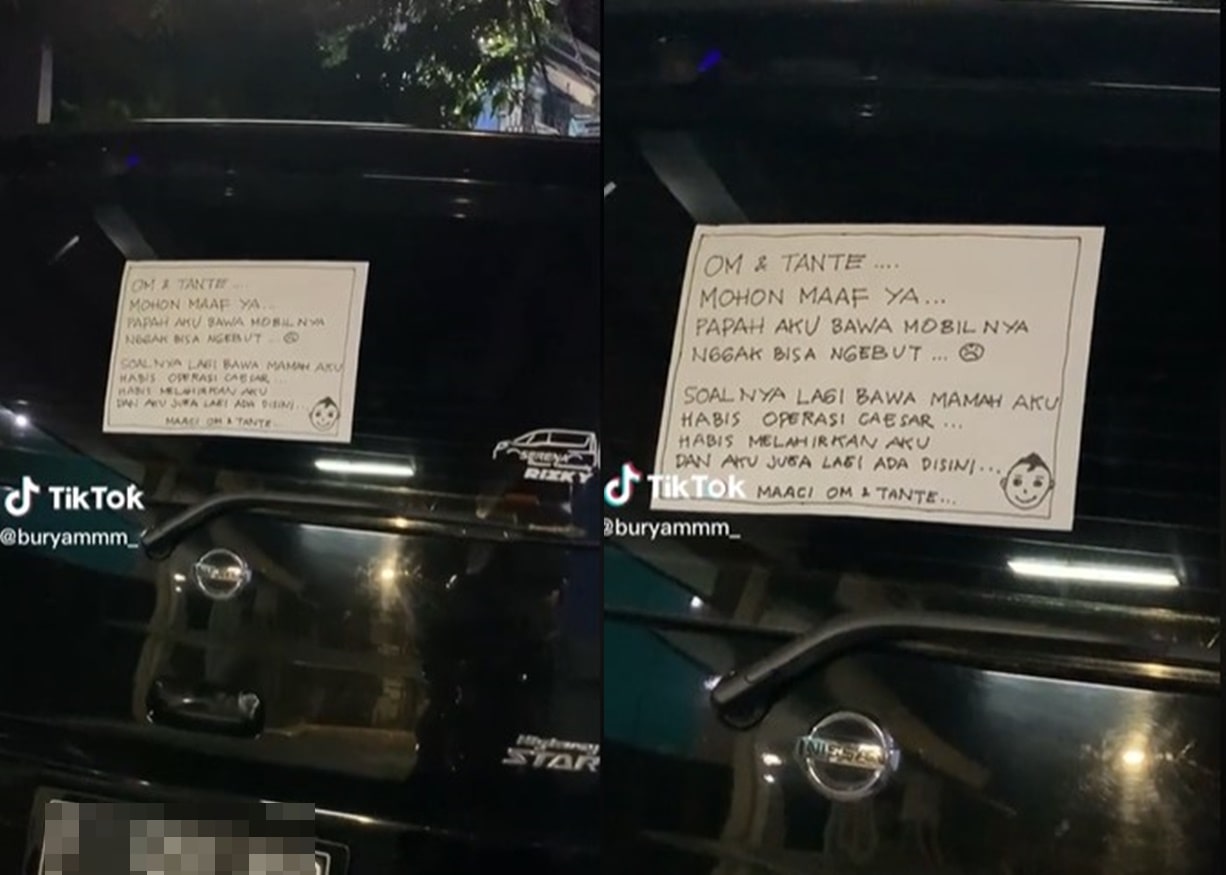 OM & TANTE ....
MOHON MAAF YA...
PAPAH AKU BAWA MOBILNYA
NGGAK BISA NGEBUT ...
SOALNYA LAGI BAWA MAMAH AKU
HABIS OPERASI CAESAR ...
HABIS MELAHIRKAN AKU
DAN AKU JUGA LAGI ADA DISINI...
MAACI OM & TANTE...
SERENA
RIZKY
TikTok
@buryammm_
NISSAN
Highway
STAR
OM & TANTE ....
MOHON MAAF YA...
PAPAH AKU BAWA MOBILNYA
NGGAK BISA NGEBUT ...
SOALNYA LAGI BAWA MAMAH AKU
HABIS OPERASI CAESAR ...
HABIS MELAHIRKAN AKU
DAN AKU JUGA LAGI ADA DISINI...
MAACI OM & TANTE...
TikTok
@buryammm_
NISSAN